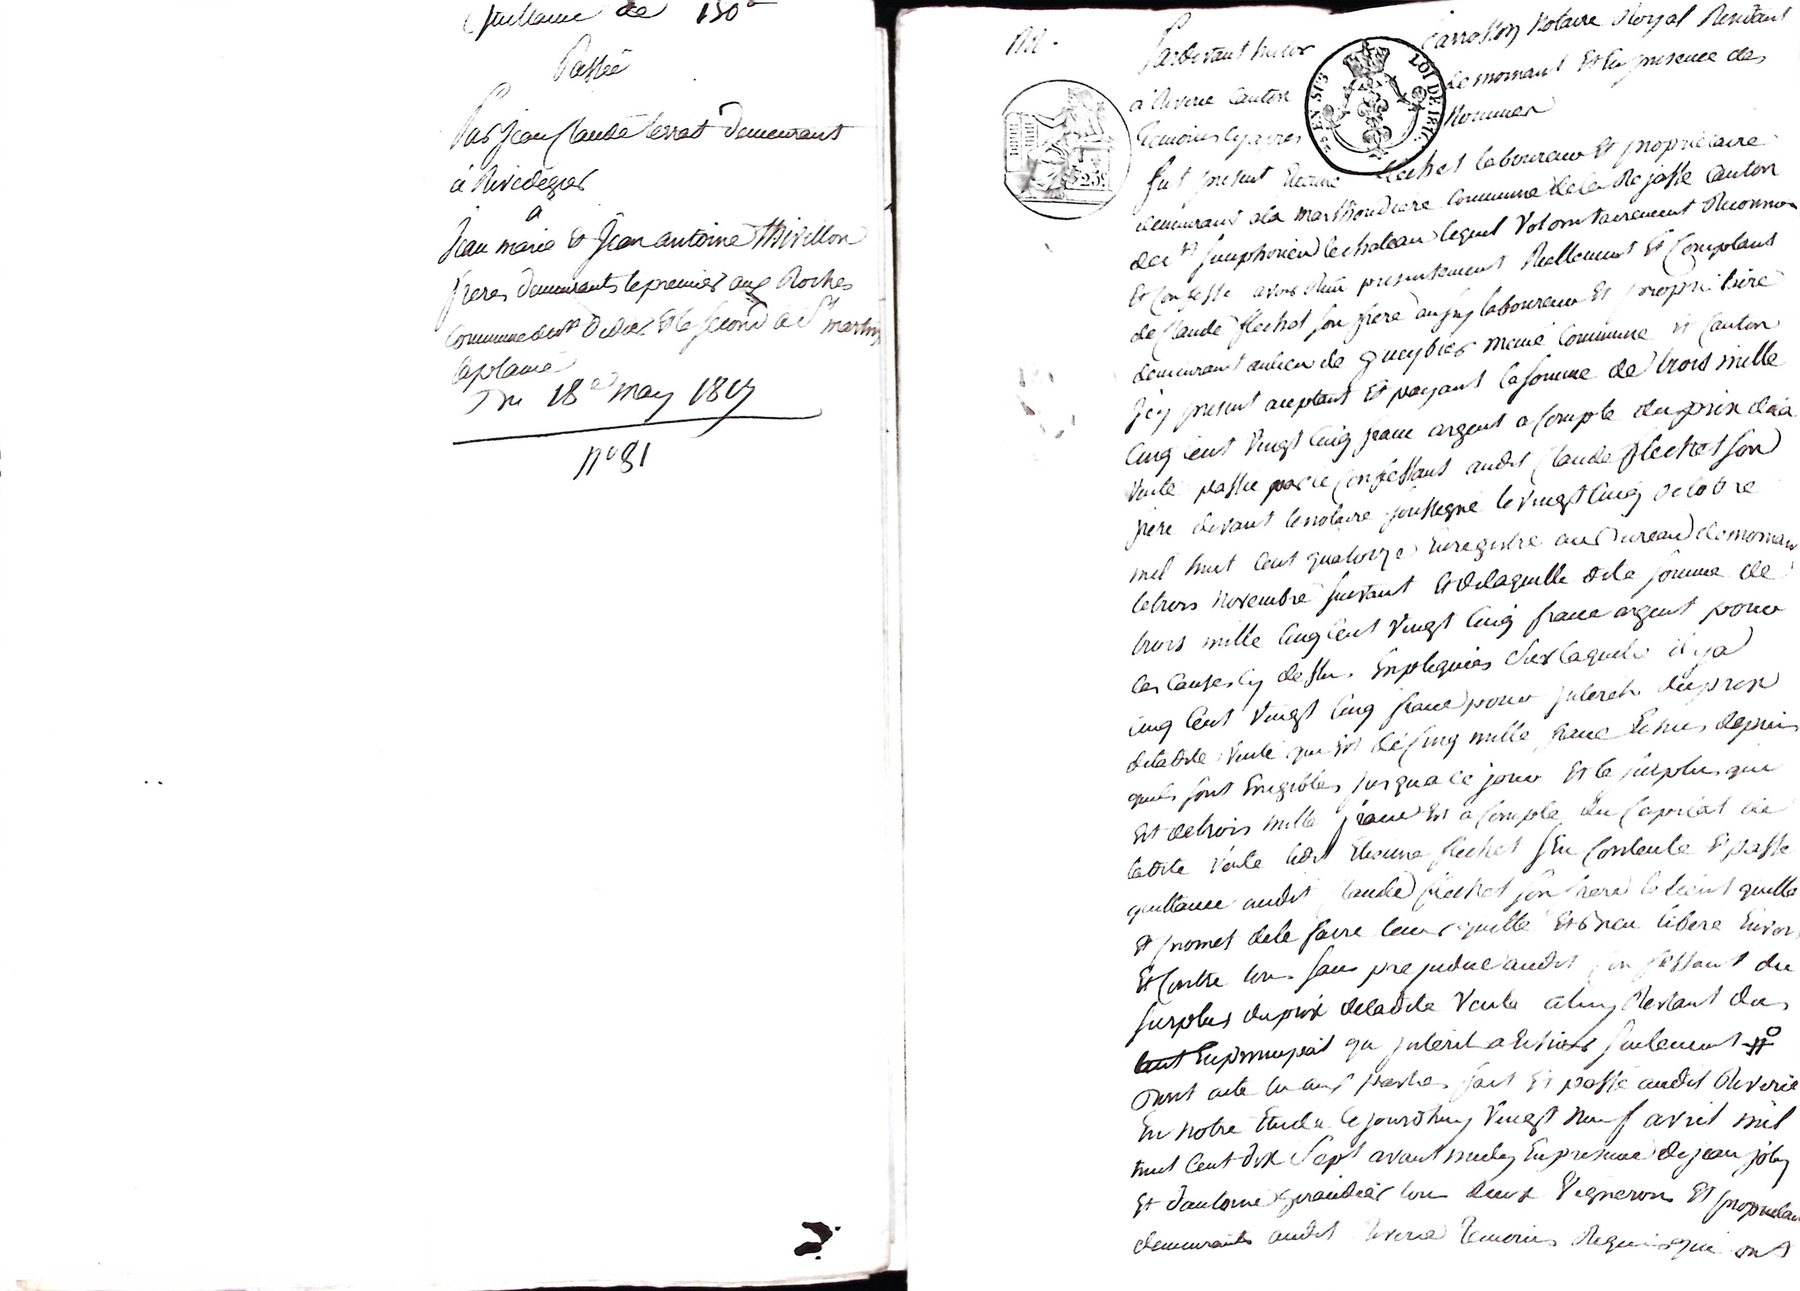 quittance de 150#
Passée
Par Jean Claude terrat demeurant
à Rivedegier
a
Jean marie et Jean antoine thivillon
freres demeurants le premier aux Roches
commune de st Didier et le second à St martin
laplaine
Du 18e may 1817
n° 81
Pardevant Carrasson Notaire Royal Residant
à Riverie canton de mornant et en presence des
temoins cy apres Nommes
fut present Etienne flechet laboureur et propriétaire
demeurant ala marthoudiere commune de la Rajasse canton
de st simphorien le chateau lequel volontairement Reconnu
et confesse avoir Reçu presentement Reellement et comptant
de Claude flechet son frere aussy laboureur et propriétaire
demeurant au lieu de meme commune et canton
Icy present acceptant et payant la somme de trois mille
cinq cent vingt cinq franc argent a compte du prix de la
vente passée par le confessant audit Claude flechet son
frere devant le notaire soussigné le vingt cinq octobre
mil huit cent quatorze enregistre au Bureau de mornan
le trois novembre suivant et de laquelle dite somme de
trois mille cinq cent vingt cinq franc argent pour
les causes cy dessus Expliquées sur laquelle il y a
cinq cent vingt cinq franc pour interets du prix
de ladite vente qui est de cinq mille franc Echus depuis
quils sont Exigibles jusqua ce jour et le surplus qui
est de trois mille franc est a compte du capital de
ladite vente ledit Etienne flechet sen contente et passe
quittance audit Claude flechet son frere le tient quitte
et promet de le faire tenir quitte et Bien libere Envers
et contre tous sans prejudice audit confessant du
surplus du prix de ladite vente a luy Restant du
tant En principal qu interet a Echoir seulement #
Dont acte lu aux parties fait et passé audit Riverie
En notre Etude le jourdhuy vingt neuf avril mil
huit cent dix Sept avant midy En presence de jean joly
et d'antoine giraudier tous deux vignerons et proprietaires
demeurants audit Riverie temoins Requis qui ont